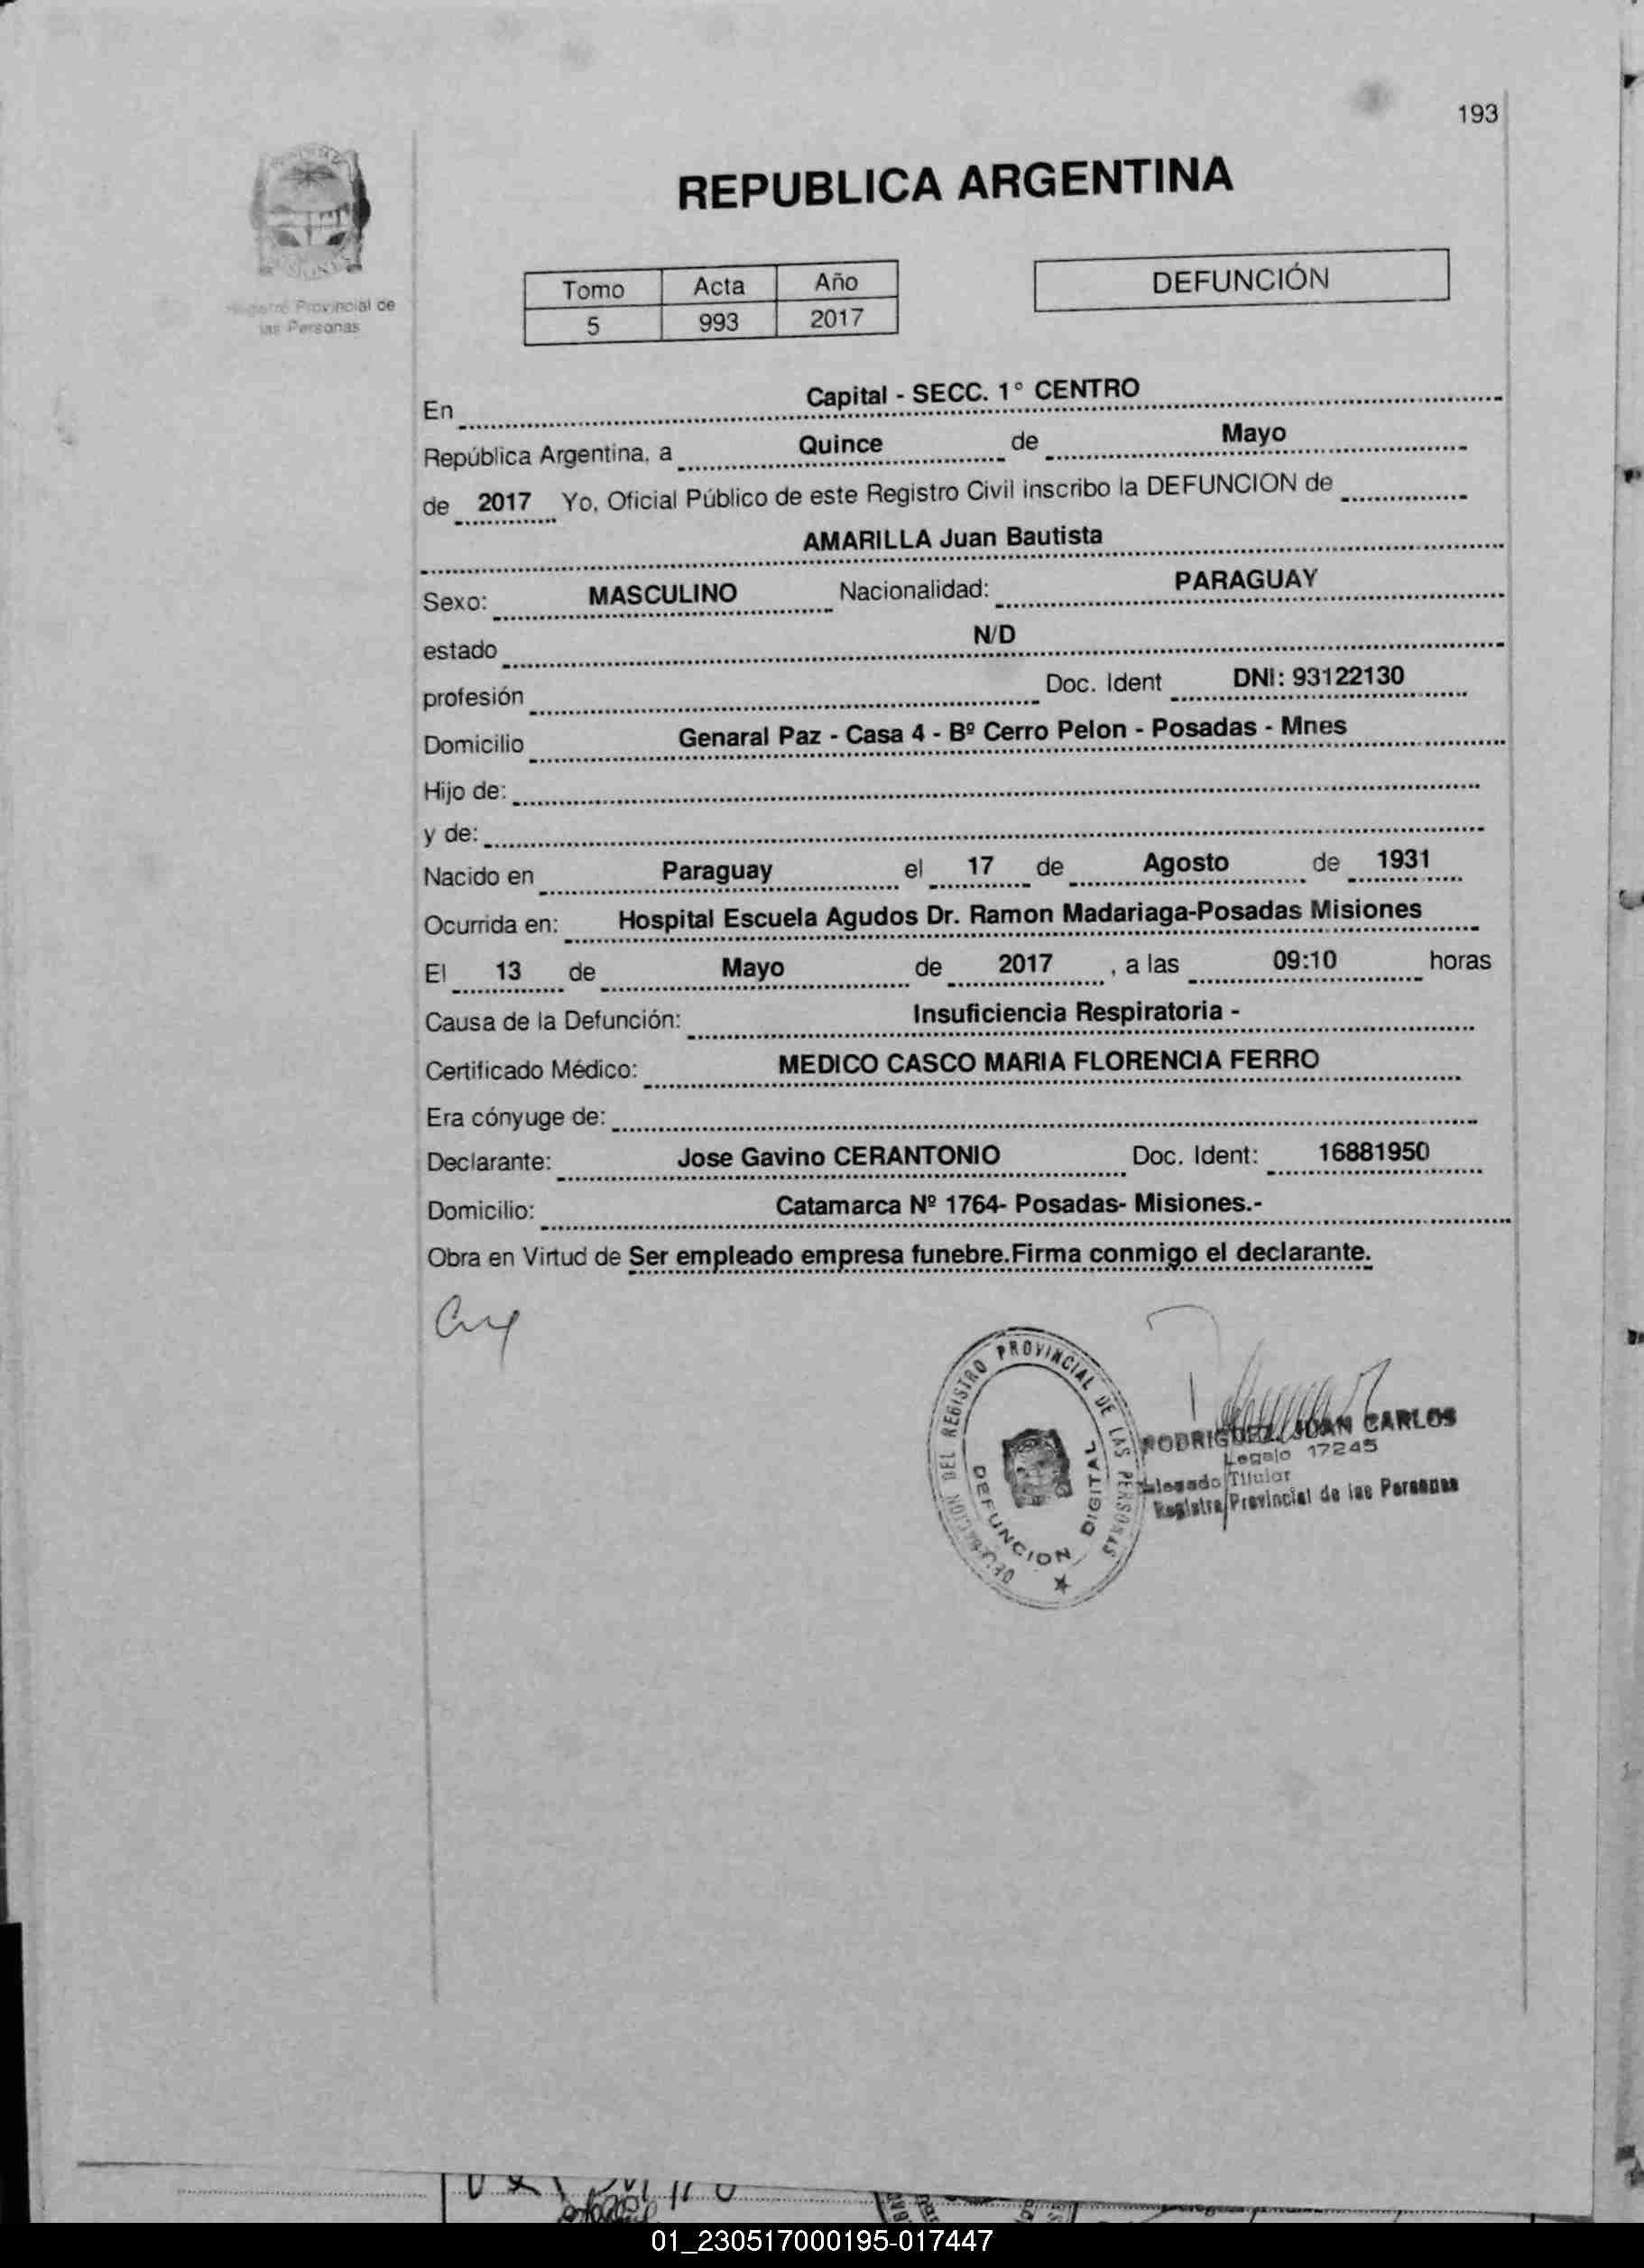 193
REPUBLICA ARGENTINA
Registro Provincial de
las Personas
Tomo Acta Año
5 993 2017
DEFUNCIÓN
En Capital - SECC. 1° CENTRO
República Argentina, a Quince de Mayo
de 2017 Yo, Oficial Público de este Registro Civil inscribo la DEFUNCION de
AMARILLA Juan Bautista
Sexo: MASCULINO Nacionalidad: PARAGUAY
estado N/D
profesión Doc. Ident DNI: 93122130
Domicilio Genaral Paz - Casa 4 - Bº Cerro Pelon - Posadas - Mnes
Hijo de:
y de:
Nacido en Paraguay el 17 de Agosto de 1931
Ocurrida en: Hospital Escuela Agudos Dr. Ramon Madariaga-Posadas Misiones
El 13 de Mayo de 2017 , a las 09:10 horas
Causa de la Defunción: Insuficiencia Respiratoria -
Certificado Médico: MEDICO CASCO MARIA FLORENCIA FERRO
Era cónyuge de:
Declarante: Jose Gavino CERANTONIO Doc. Ident: 16881950
Domicilio: Catamarca Nº 1764- Posadas- Misiones.-
Obra en Virtud de Ser empleado empresa funebre.Firma conmigo el declarante.
DEL REGISTRO PROVINCIAL DE LAS PERSONAS
DEFUNCION DIGITAL
RODRIGUEZ JUAN CARLOS
Legajo 17245
Delegado Titular
Registro Provincial de las Personas
01_230517000195-017447